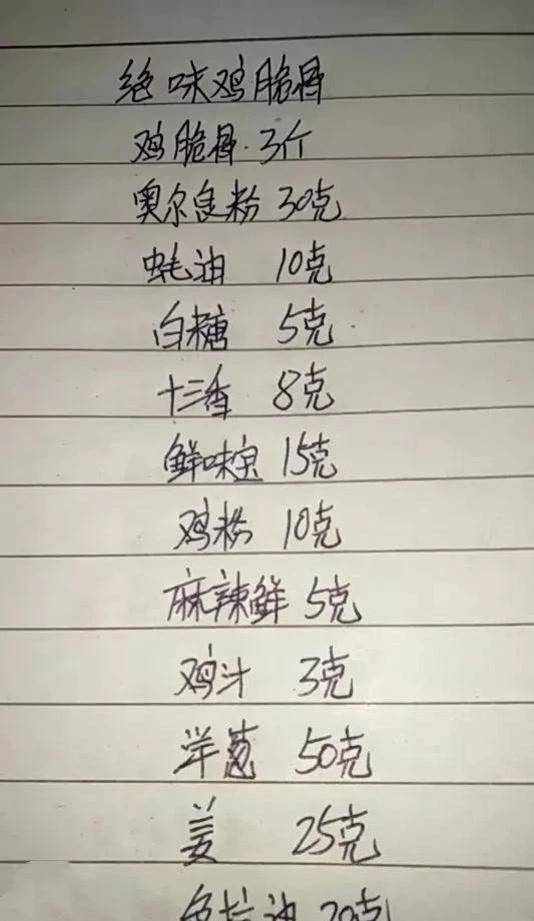 绝味鸡脆骨
鸡脆骨·3个
奥尔良粉 30克
蚝油 10克
白糖 5克
十三香 8克
鲜味宝 15克
鸡粉 10克
麻辣鲜 5克
鸡汁 3克
洋葱 50克
姜 25克
色拉油 20克